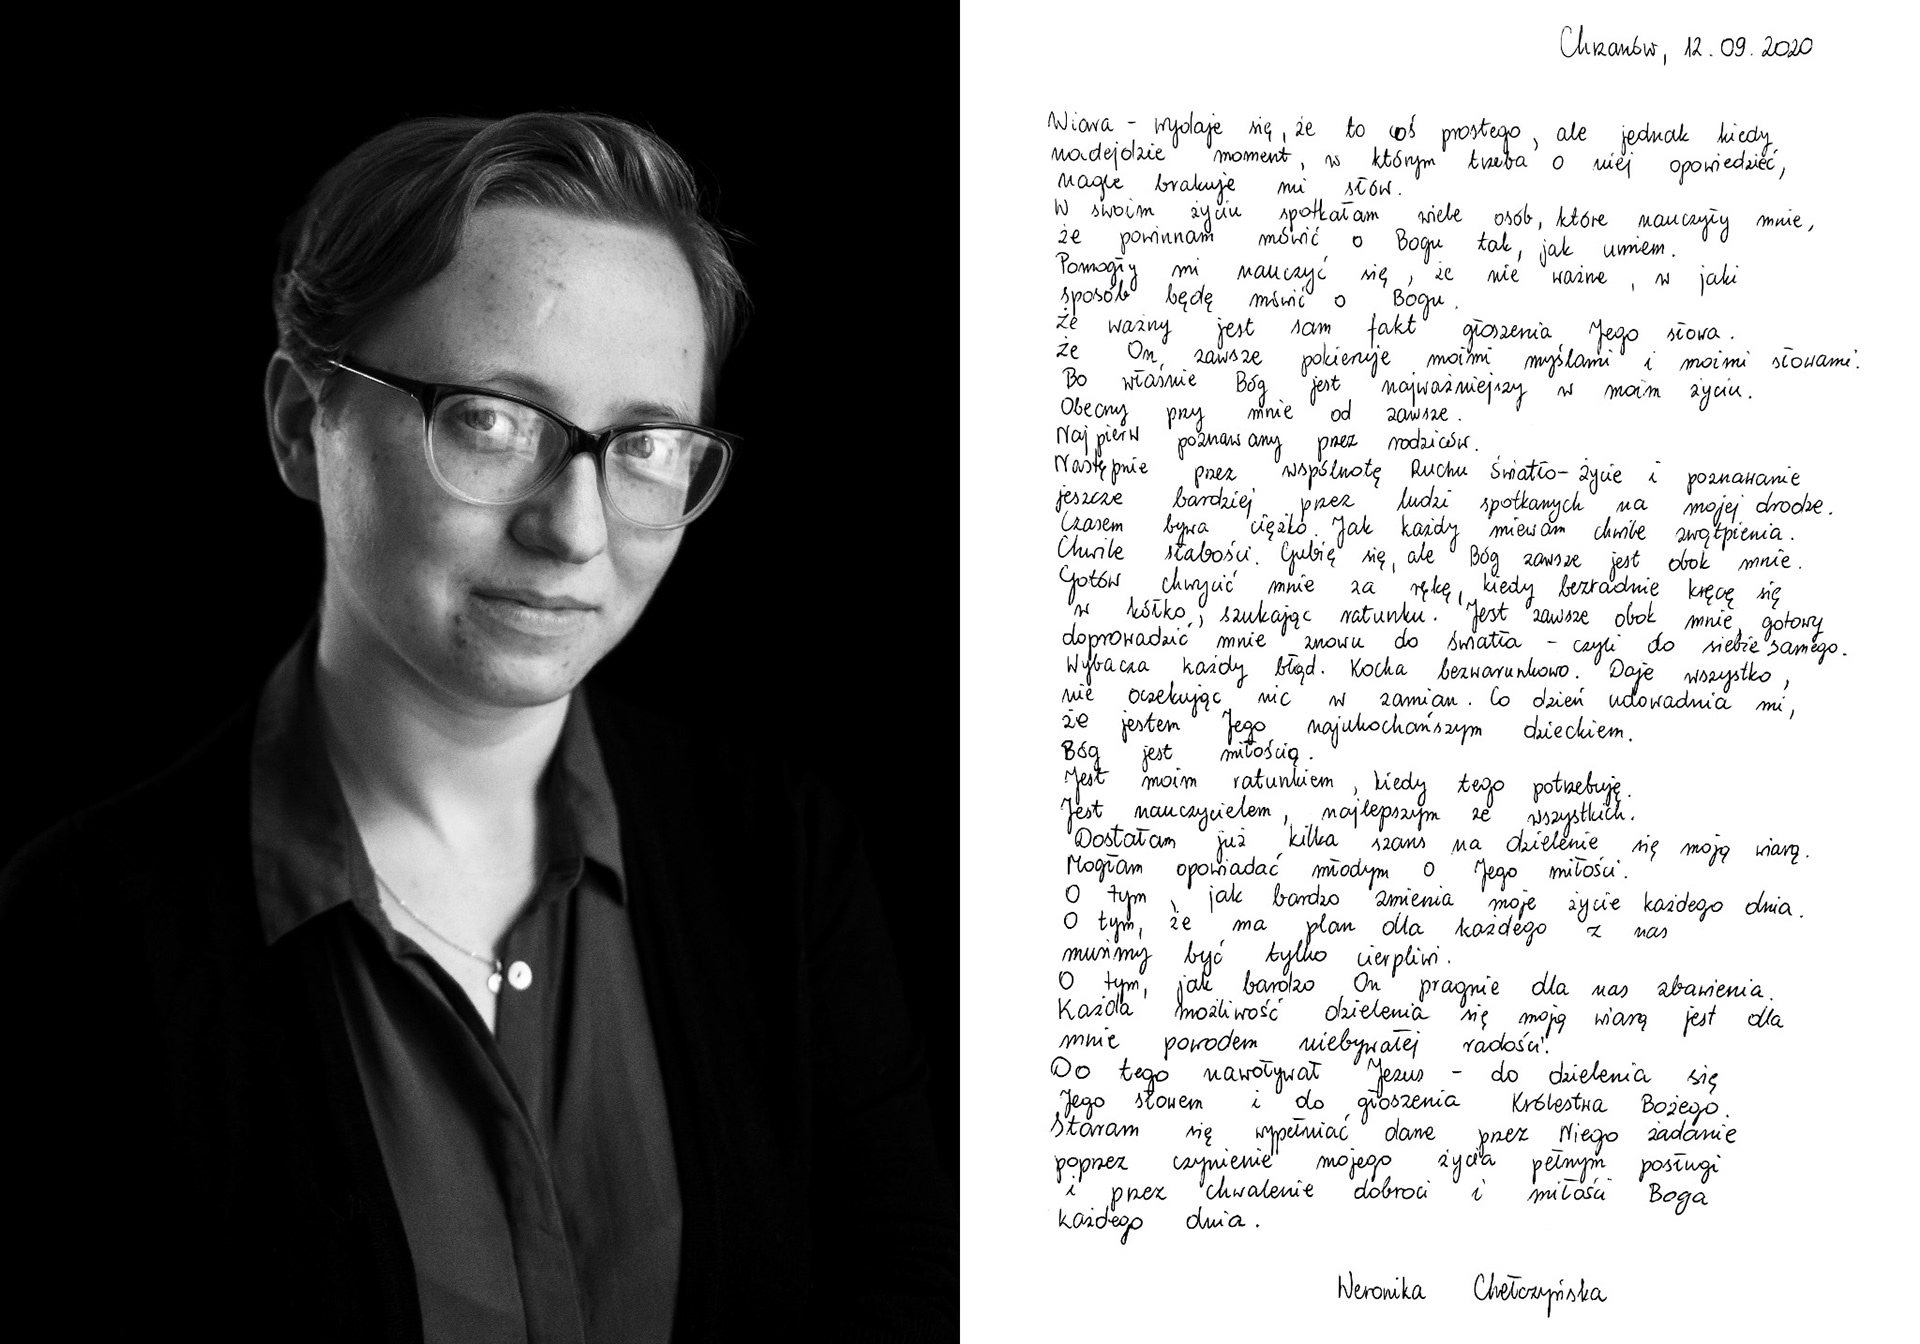 Chrzanów, 12.09.2020
Wiara - wydaje się, że to coś prostego, ale jednak kiedy
nadejdzie moment, w którym trzeba o niej opowiedzieć,
nagle brakuje mi słów.
W swoim życiu spotkałam wiele osób, które nauczyły mnie,
że powinnam mówić o Bogu tak, jak umiem.
Pomogły mi nauczyć się, że nie ważne, w jaki
sposób będę mówić o Bogu.
Że ważny jest sam fakt głoszenia Jego słowa.
Że On zawsze pokieruje moimi myślami i moimi słowami.
Bo właśnie Bóg jest najważniejszy w moim życiu.
Obecny przy mnie od zawsze.
Najpierw poznawany przez rodziców.
Następnie przez wspólnotę Ruchu Światło-Życie i poznawanie
jeszcze bardziej przez ludzi spotkanych na mojej drodze.
Czasem bywa ciężko. Jak każdy miewam chwile zwątpienia.
Chwile słabości. Gubię się, ale Bóg zawsze jest obok mnie.
Gotów chwycić mnie za rękę, kiedy bezradnie kręcę się
w kółko, szukając ratunku. Jest zawsze obok mnie, gotowy
doprowadzić mnie znowu do światła - czyli do siebie samego.
Wybacza każdy błąd. Kocha bezwarunkowo. Daje wszystko,
nie oczekując nic w zamian. Co dzień udowadnia mi,
że jestem Jego najukochańszym dzieckiem.
Bóg jest miłością.
Jest moim ratunkiem, kiedy tego potrzebuję.
Jest nauczycielem, najlepszym ze wszystkich.
Dostałam już kilka szans na dzielenie się moją wiarą.
Mogłam opowiadać młodym o Jego miłości.
O tym, jak bardzo zmienia moje życie każdego dnia.
O tym, że ma plan dla każdego z nas
musimy być tylko cierpliwi.
O tym, jak bardzo On pragnie dla nas zbawienia.
Każda możliwość dzielenia się moją wiarą jest dla
mnie powodem niebywałej radości.
Do tego nawoływał Jezus - do dzielenia się
Jego słowem i do głoszenia Królestwa Bożego.
Staram się wypełniać dane przez Niego zadanie
poprzez czynienie mojego życia pełnym posługi
i przez chwalenie dobroci i miłości Boga
każdego dnia.
Weronika Chełczyńska